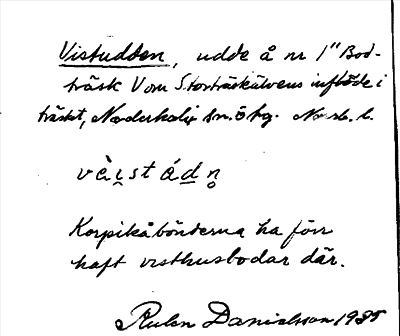 Vistudden, udde å nr 1" Bod-
träsk V om Storträskälvens inflöde i
träsket, Nederkalix sn. ö hg. Nrsb. l.
vὲι̯st á d n̥
Korpikåbönderna ha förr
haft visthusbodar där.
Ruben Danielsson 1935